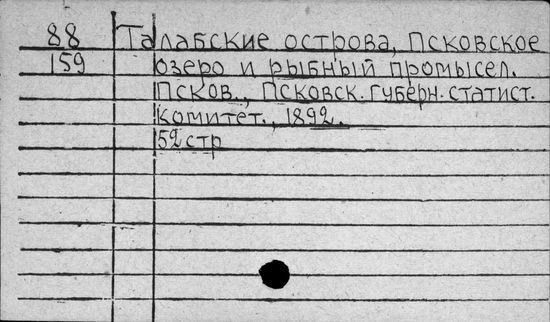 88 Талабские острова, Псковское
159 озеро и рыбный промысел.
Псков., Псковск. губерн. статист.
комитет., 1892.
52 стр